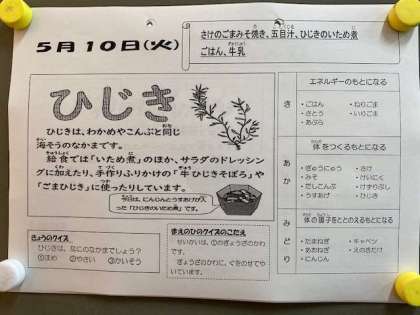 5月10日(火)
さけのごまみそ焼き、五目汁、ひじきのいため煮
ごはん、牛乳
ひじき
ひじきは、わかめやこんぶと同じ
海そうのなかまです。
給食では「いため煮」のほか、サラダのドレッシン
グに加えたり、手作りふりかけの「牛ひじきそぼろ」や
「ごまひじき」に使ったりしています。
今日は、にんじんとうすあげが入
った「ひじきのいため煮」です。
きょうのクイズ
ひじきは、なにのなかまでしょう？
①まめ ②やさい ③かいそう
まえのひのクイズのこたえ
せいかいは、①のぎょうざのかわで
す。ぎょうざのかわに、ぐをのせてや
いています。
き
エネルギーのもとになる
・ごはん ・ねりごま
・さとう ・いりごま
・あぶら
あか
体をつくるもとになる
・ぎゅうにゅう ・さけ
・みそ ・けいにく
・だしこんぶ ・けずりぶし
・うすあげ ・ひじき
みどり
体の調子をととのえるもとになる
・たまねぎ ・キャベツ
・あおねぎ ・えのきだけ
・にんじん